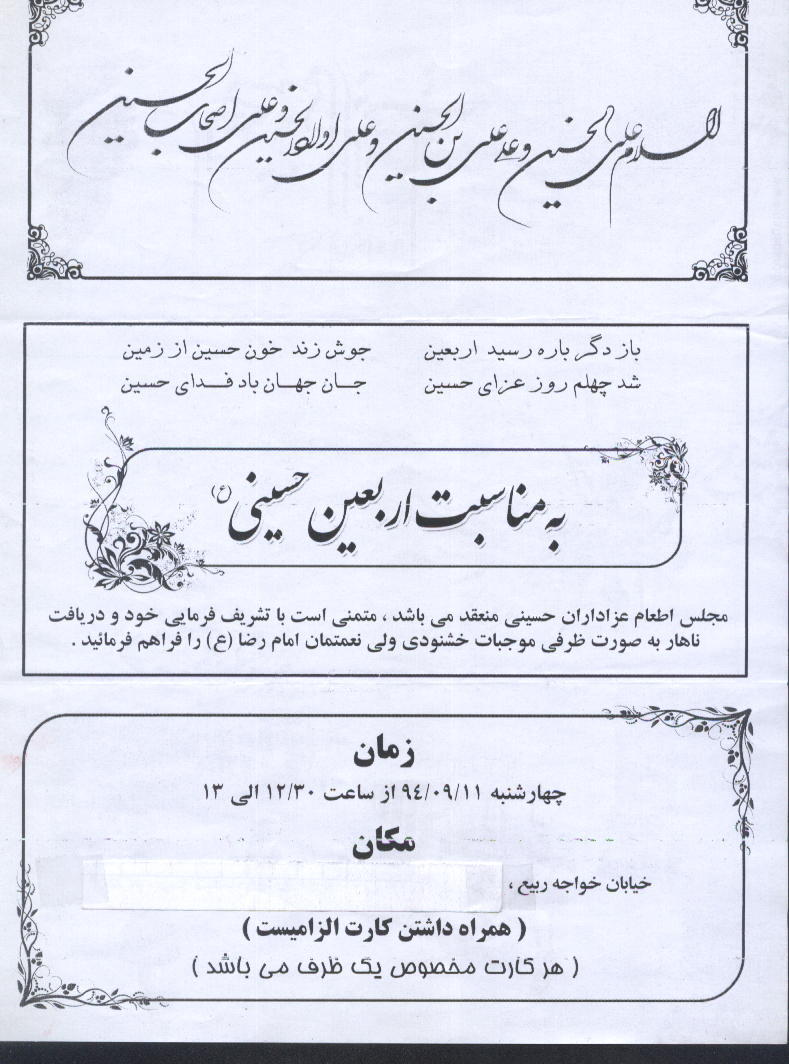 السلام علی الحسین و علی علی بن الحسین و علی اولاد الحسین و علی اصحاب الحسین
باز دگر باره رسید اربعین جوش زند خون حسین از زمین
شد چهلم روز عزای حسین جان جهان باد فدای حسین
به مناسبت اربعین حسینی (ع)
مجلس اطعام عزاداران حسینی منعقد می باشد ، متمنی است با تشریف فرمایی خود و دریافت
ناهار به صورت ظرفی موجبات خشنودی ولی نعمتمان امام رضا (ع) را فراهم فرمائید .
زمان
چهارشنبه ۹٤/۰۹/۱۱ از ساعت ۱۲/۳۰ الی ۱۳
مکان
خیابان خواجه ربیع ،
( همراه داشتن کارت الزامیست )
( هر کارت مخصوص یک ظرف می باشد )